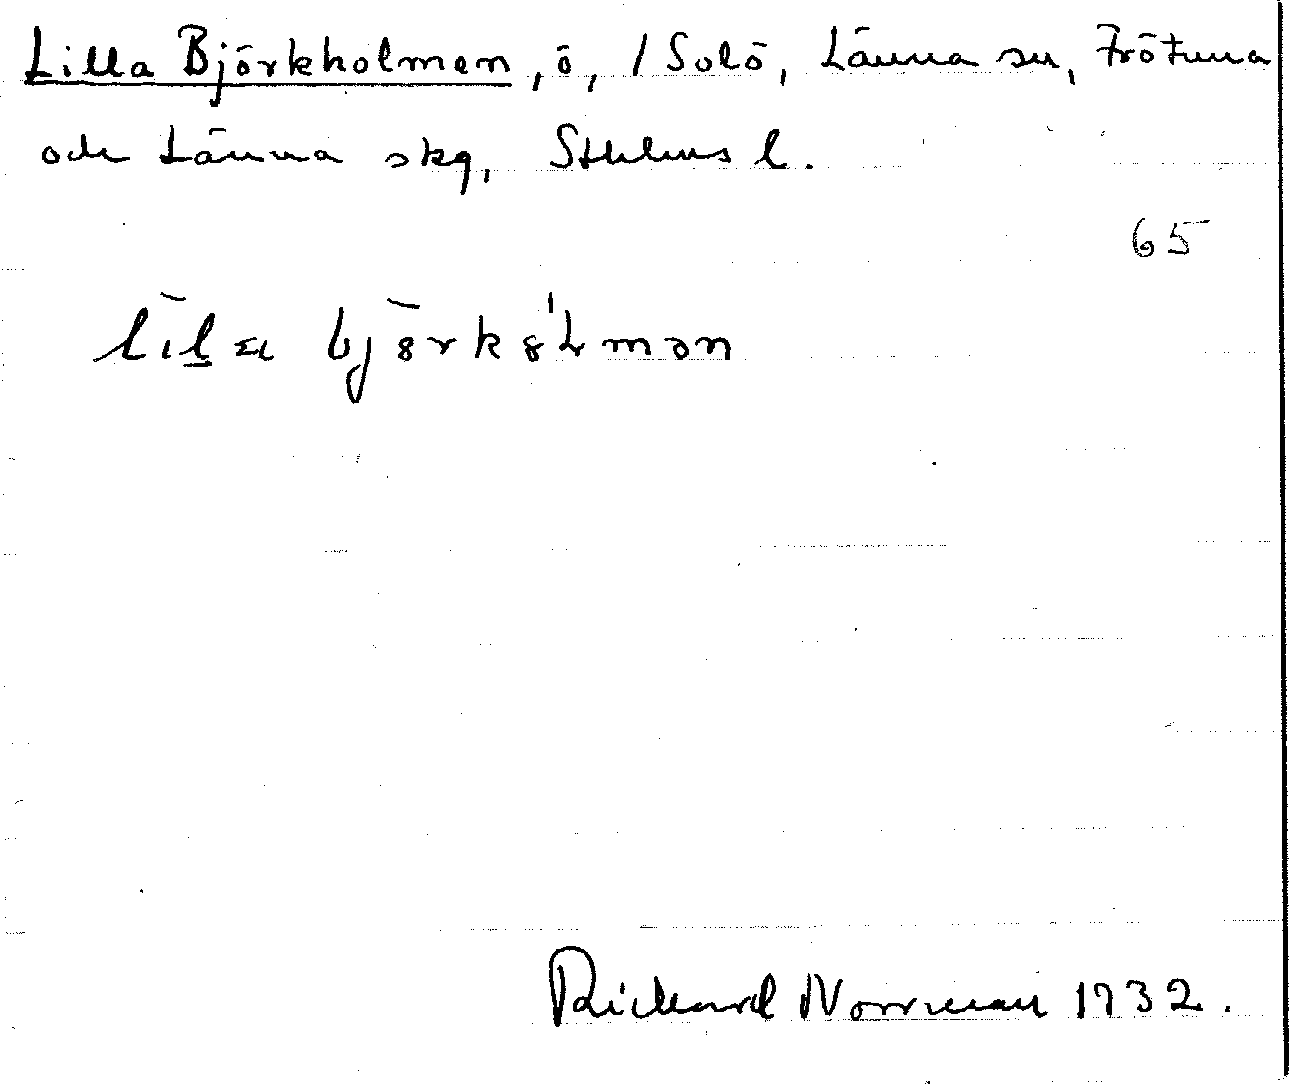 Lilla Björkholmen, ö, / Solö, Länna sn, Frötuna
och Länna skg, Sthlms l.
65
Rickard Norrman 1932.